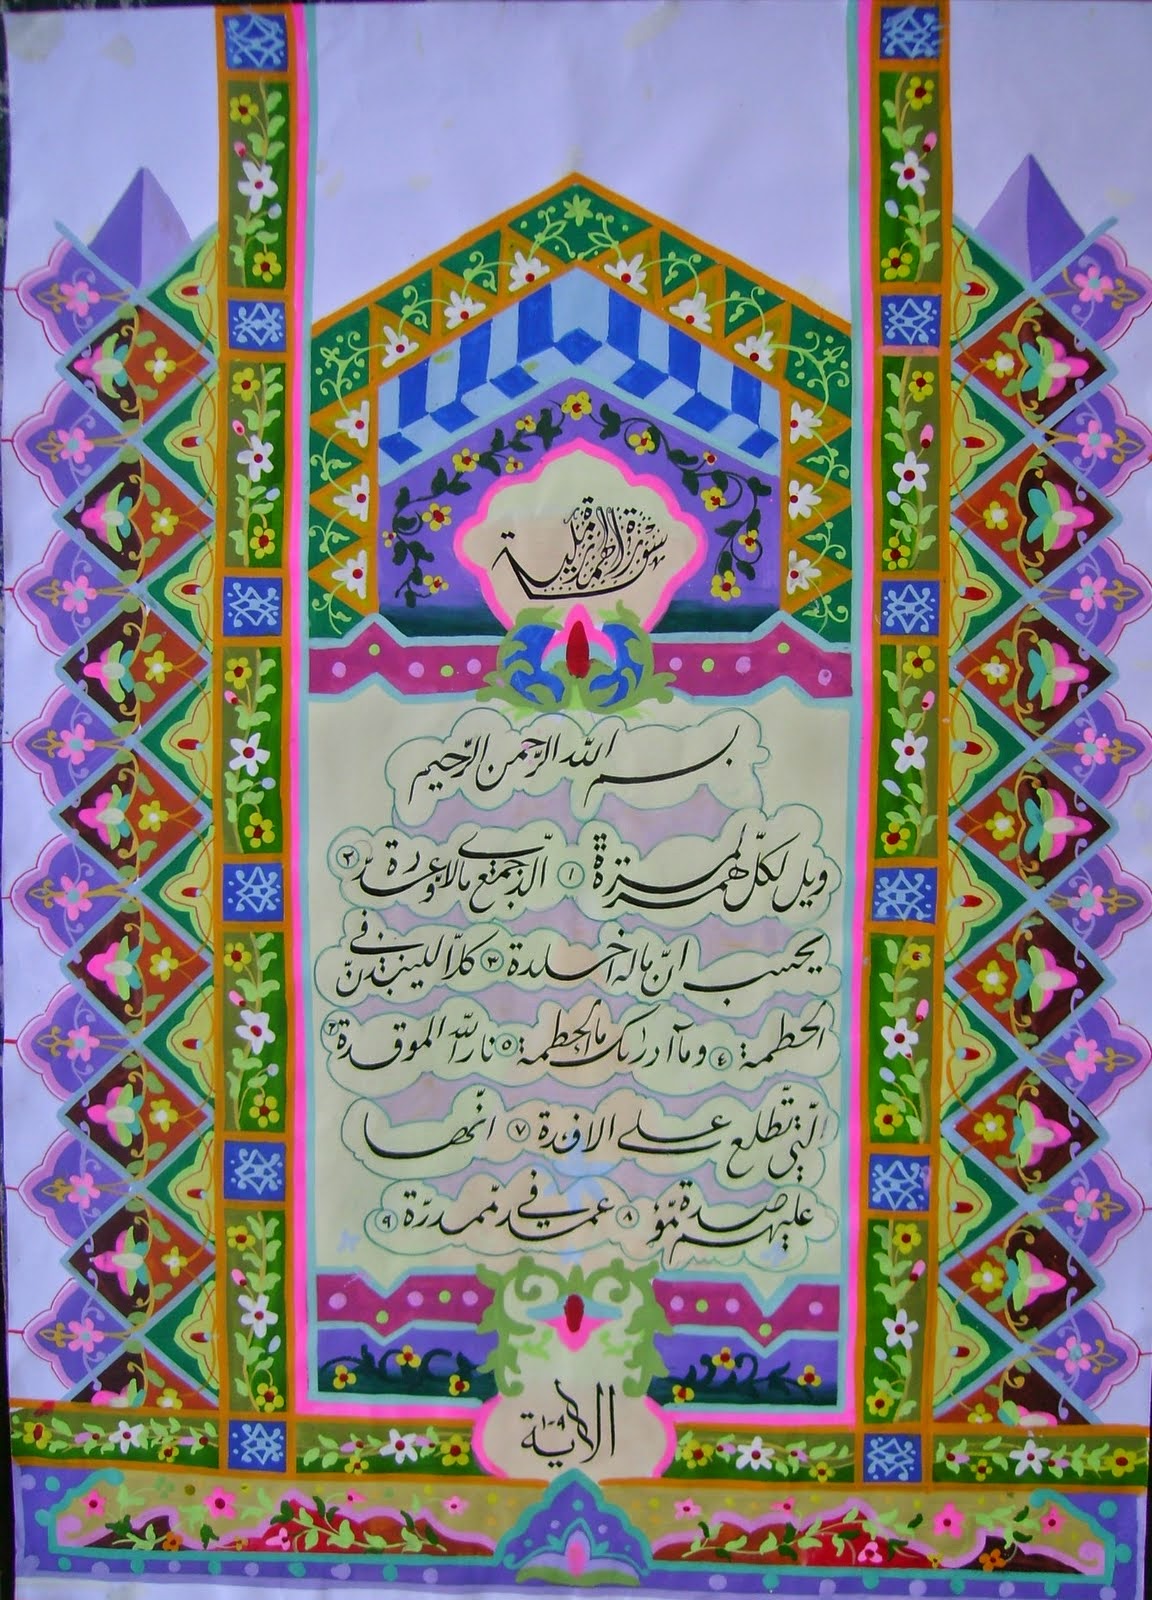 سورة الهمزة مكية
بسم الله الرحمن الرحيم
ويل لكلّ همزة لمزة ١ الّذي جمع مالا وّعدّدة ٢
يحسب انّ ماله اخلدة ٣ كلّا لينبذنّ فى
الحطمة ٤ ومآ ادرىك ما الحطمة ٥ نار اللّه الموقدة ٦
الّتي تطّلع على الافدة ٧ انّها
عليهم مّؤصدة ٨ في عمد مّمدّدة ٩
الاية
١-٩